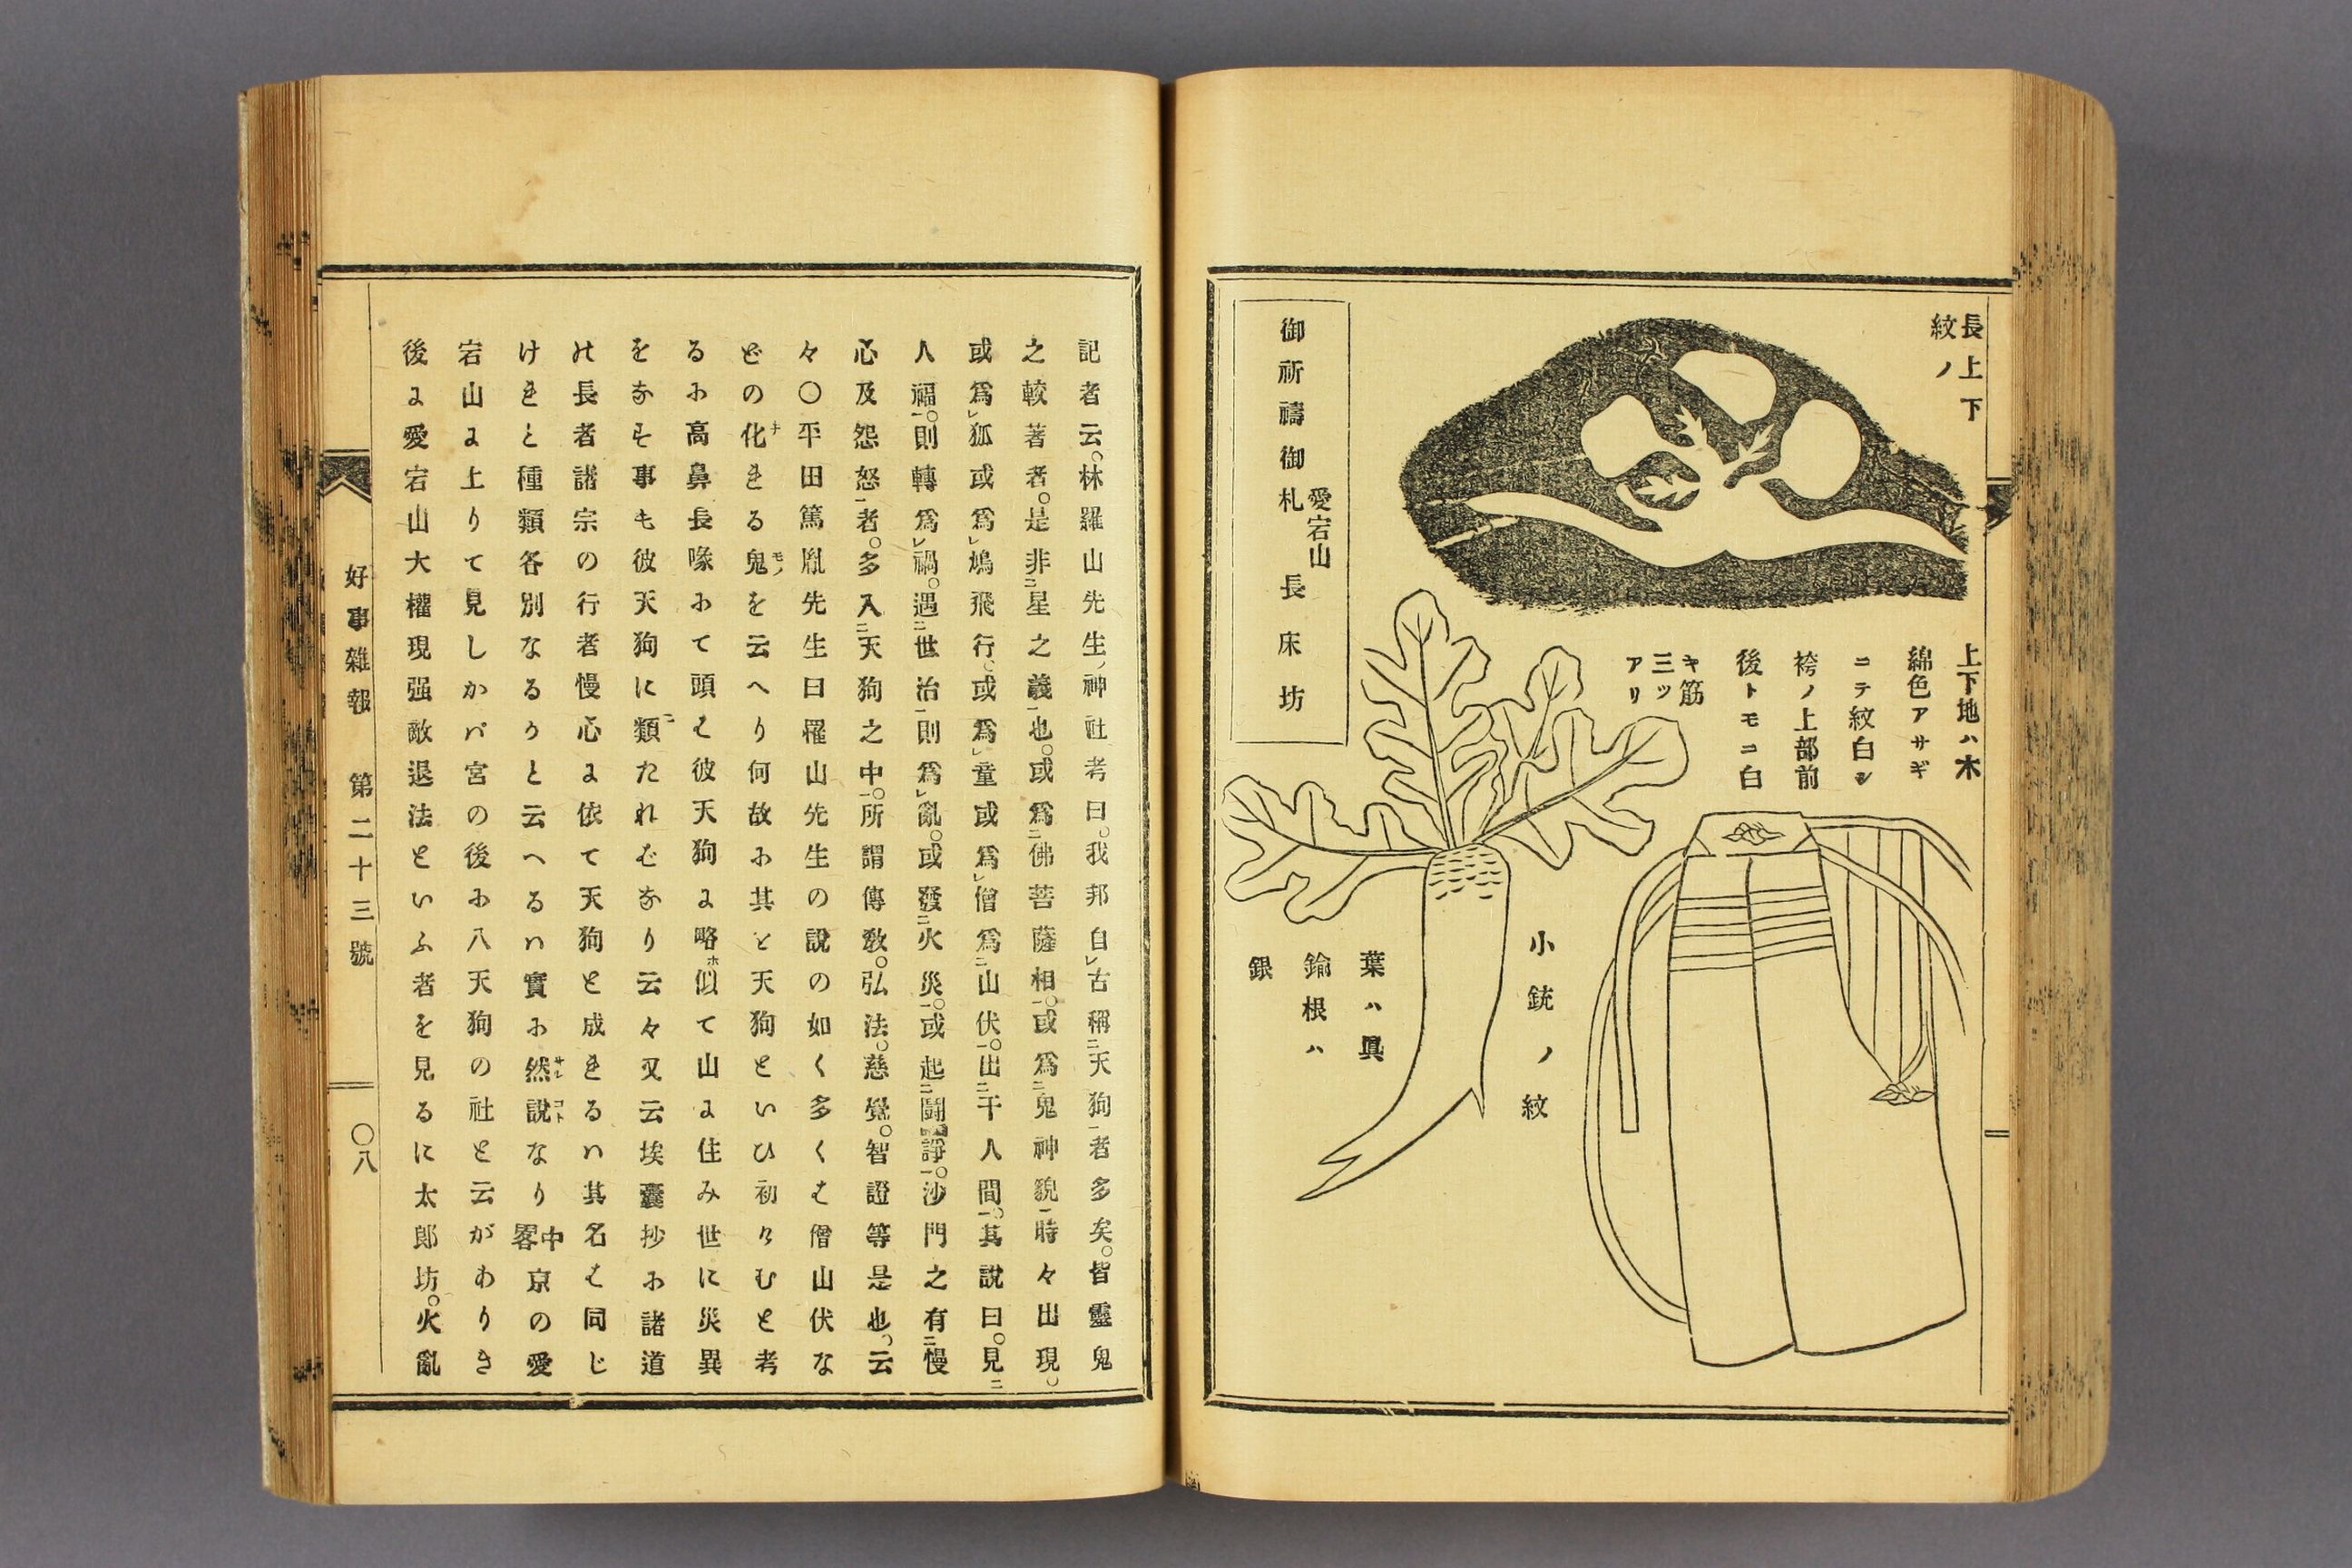 長上下
紋ノ
上下地ハ木
綿色アサギ
ニテ紋白シ
袴ノ上部前
後トモニ白
キ筋
三ッ
アリ
小銃ノ紋
葉ハ眞
鍮根ハ
銀
愛宕山
御祈禱御札 長床坊
記者云。林羅山先生、神社考曰。我邦自レ古稱二天狗一者多矣。皆靈鬼
之較著者。是非二星之義一也。或爲二佛菩薩相一。或爲二鬼神貌一時々出現。
或爲レ狐或爲レ鳩飛行、或爲レ童或爲レ僧爲二山伏一。出二干人間一。其說曰。見二
人福一。則轉爲レ禍。遇二世治一則爲レ亂。或發二火災一。或起二鬪諍一。沙門之有二慢
心及怨怒一者。多入二天狗之中一。所謂傳敎。弘法。慈覺。智證等是也、云
々〇平田篤胤先生曰羅山先生の說の如く多くは僧山伏な
どの化キる鬼モノを云へり何故に其と天狗といひ初けむと考
るに高鼻長喙にて頭は彼天狗に略ホ似て山に住み世に災異
をなす事も彼天狗に類たればなり云々又云埃囊抄に諸道
の長者諸宗の行者慢心に依て天狗と成たるハ其名は同じ
けれと種類各別なるうと云へるハ實に然サレ說コトなり中畧京の愛
宕山に上りて見しかバ宮の後に八天狗の社と云がありき
後に愛宕山大權現强敵退法といふ者を見るに太郎坊。火亂
好事雜報 第二十三號
〇八